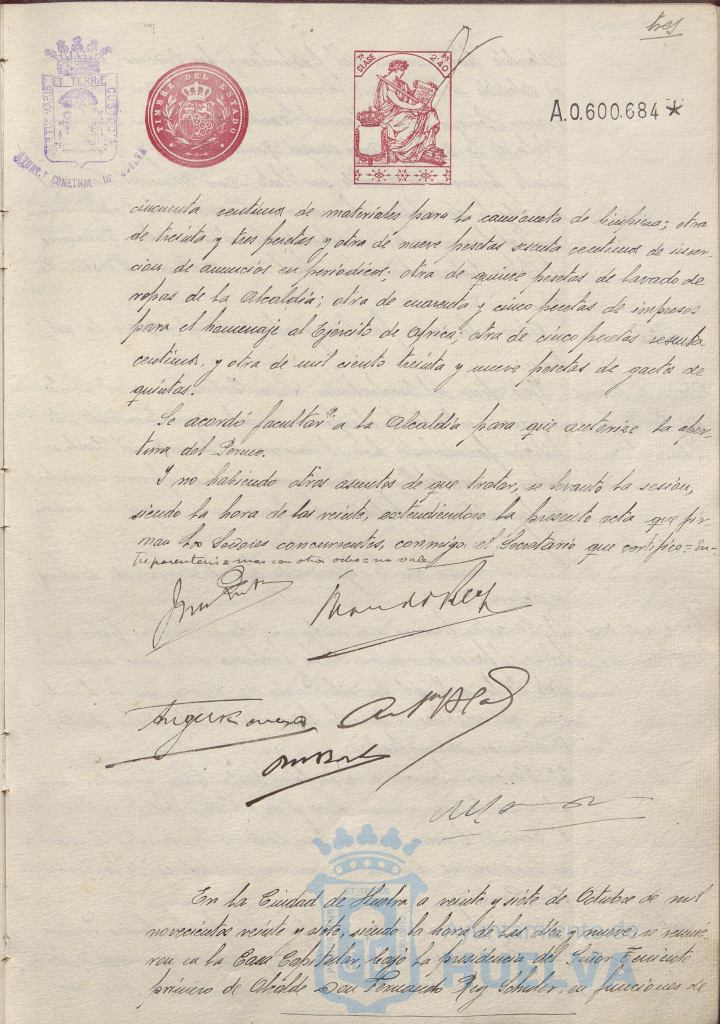 tres
PORTUS MARIS ET TERRÆ CUSTODIA
AYUNT. CONSTNAL. DE HUELVA
TIMBRE DEL ESTADO
7ª CLASE
2'40
A.0.600.684*
cincuenta centimos de materiales para la camioneta de limpieza; otra
de treinta y tres pesetas y otra de nueve pesetas sesenta centimos de inser-
cion de anuncios en periodicos; otra de quince pesetas de lavado de
ropas de la Alcaldía; otra de cuarenta y cinco pesetas de impresos
para el homenaje al Ejército de Africa; otra de cinco pesetas sesenta
centimos, y otra de mil ciento treinta y nueve pesetas de gastos de
quintas.
Se acordó facultar a la Alcaldía para que autorize la aper-
tura del
Y no habiendo otros asuntos de que tratar, se levantó la sesión,
siendo la hora de las veinte, extendiendose la presente acta que fir-
man los Señores concurrentes, conmigo el Secretario que certifico = En-
tre parentesis = mas con otra = no vale
En la Ciudad de Huelva a veinte y siete de Octubre de mil
novecientos veinte y siete, siendo la hora de las diez y nueve, se reunie-
ron en la Casa Capitular, bajo la presidencia del Señor Teniente
primero de Alcalde Don Fernando Rey Schuler en funciones de
HUELVA